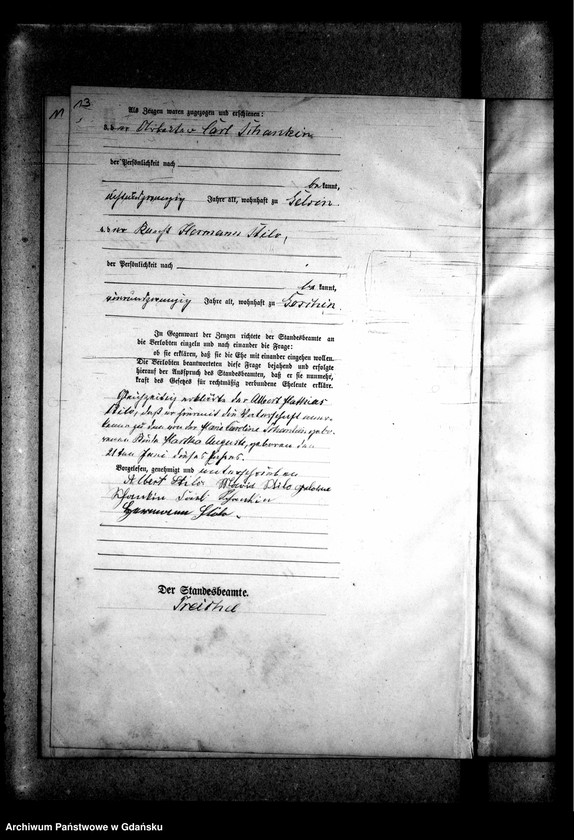 13
Als Zeugen waren zugezogen und erschienen:
3. der Arbeiter Carl Schankin
der Persönlichkeit nach
be kannt,
achtundzwanzig Jahre alt, wohnhaft zu
4. der Hermann Stilo,
der Persönlichkeit nach
be kannt,
Jahre alt, wohnhaft zu
In Gegenwart der Zeugen richtete der Standesbeamte an
die Verlobten einzeln und nach einander die Frage:
ob sie erklären, daß sie die Ehe mit einander eingehen wollen.
Die Verlobten beantworteten diese Frage bejahend und erfolgte
hierauf der Ausspruch des Standesbeamten, daß er sie nunmehr,
kraft des Gesetzes für rechtmäßig verbundene Eheleute erkläre.
Gleichzeitig erklärte der Albert
Stilo, daß er hiermit die Vaterschaft aner-
kenne zu dem von der Marie Caroline Schankin gebo-
renen Kinde Martha Auguste, geboren den
21ten Juni dieses Jahres.
Vorgelesen, genehmigt und unterschrieben
Albert Stilo Stilo geborene
Schankin Carl Schankin
Hermann Stilo.
Der Standesbeamte.
Archiwum Państwowe w Gdańsku